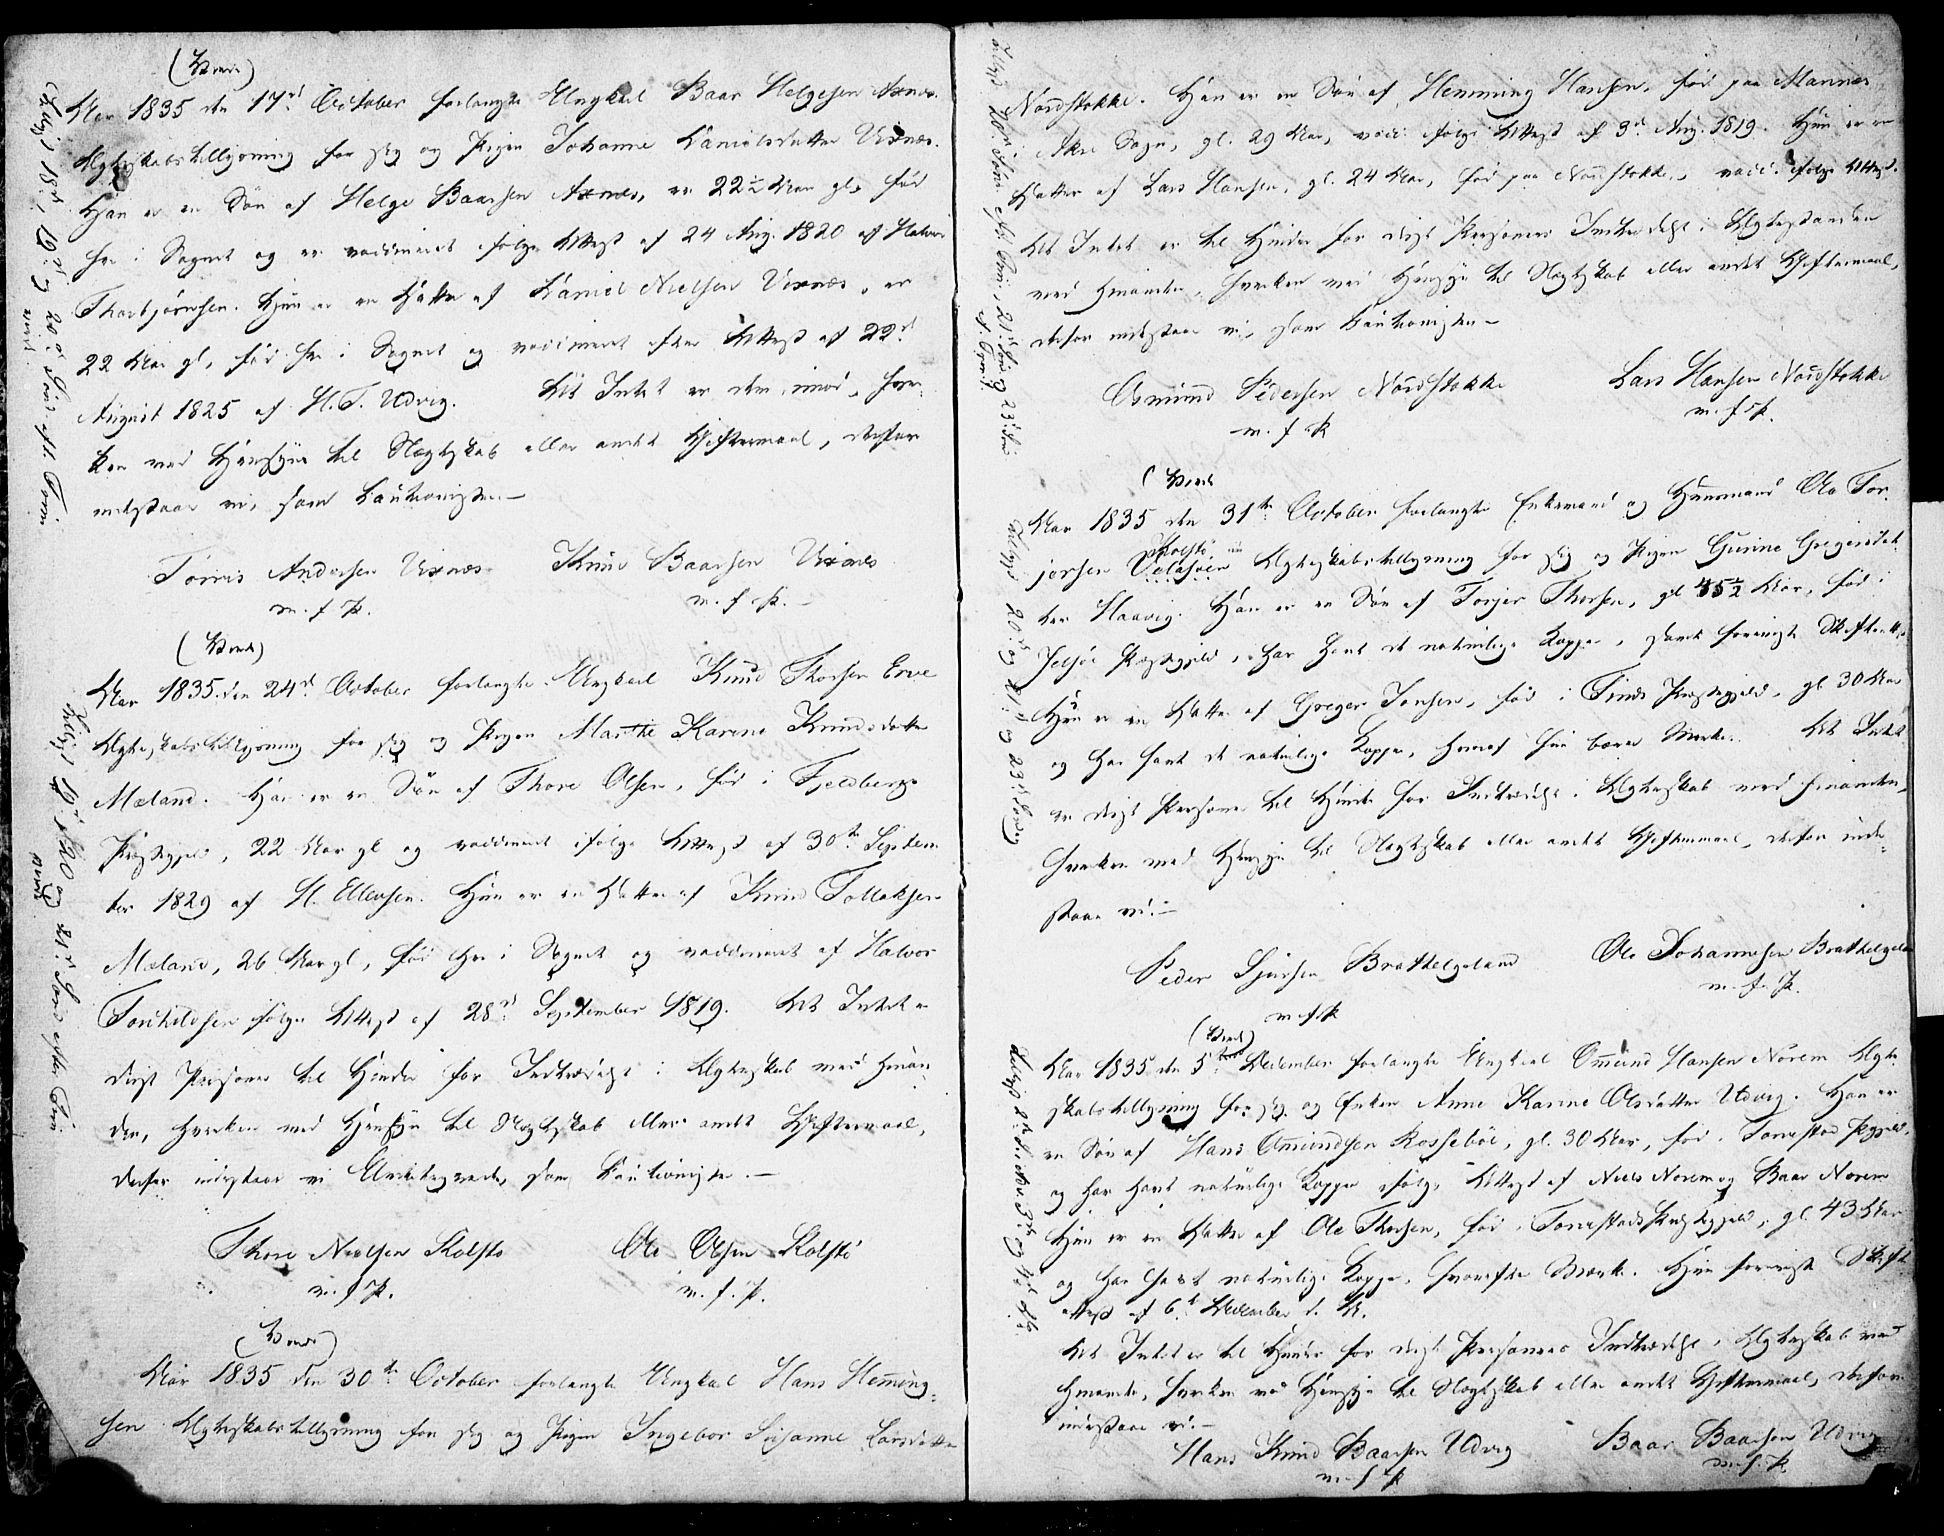 Aar 1835 den 17d October forlangte Ungkarl Baar Helgesen Axnes
Ægteskabstillysning for sig og Pigen Johanne Danielsdatter Vixnæs.
Han er en Søn af Helge Baarsen Axnæs, er 22½ Aar gl, fød
her i Sognet og er vaccineret ifølge Attest af 24 Aug. 1820 af Halvor
Thorbjørnsen. Hun er en Datter af Daniel Nielsen Vixnæs, er
22 Aar gl, fød her i Sognet og vaccineret efter Attest af 22d
August 1825 af H. T. Udvig. At Intet er dem imod, hver-
ken med Hensyn til Slægtskab eller andet Giftermaal, derfor
indestaae vi, som Cautionister.—
Tørris Andersen Vixnæs Knud Baarsen Vixnæs
m. f. P. m. f. P.
Aar 1835 den 24d October forlangte Ungkarl Knud Thorsen Erve
Ægteskabstillysning for sig og Pigen Marthe Karine Knudsdatter
Mæland. Han er en Søn af Thore Olsen, fød i Fjeldberg
Præstegjeld, 22 Aar gl og vaccineret ifølge Attest af 30te Septem-
ber 1829 af H. Ellevsen. Hun er en Datter af Knud Tollaksen
Mæland, 26 Aar gl, fød her i Sognet og vaccineret af Halvor
Torkildsen ifølge Attest af 28d September 1819. At Intet er
disse Personer til Hinder for Indtrædelse i Ægteskab med hinan-
den, hverken med Hensyn til Slægtskab eller andet Giftermaal,
derfor indestaae vi Undertegnede, som Cautionister.—
Thore Nielsen Kolstø Ole Olsen Kolstø
m. f. P. m. f. P.
Aar 1835 den 30te October forlangte Ungkarl Hans Hemming-
sen Ægteskabstillysning for sig og Pigen Ingebor Susanne Larsdatter
Nordstokke. Han er en Søn af Hemming Hansen, fød paa Mannes
Akre Sogn, gl. 29 Aar, vacc. ifølge Attest af 3d Aug. 1819. Hun er en
Datter af Lars Hansen, gl. 24 Aar, fød paa Nordstokke, vacc. ifølge Attest.
At Intet er til Hinder for disse Personers Indtrædelse i Ægtestanden
med hinanden, hverken med Hensyn til Slægtskab eller andet Giftermaal,
derfor indestaae vi, som Cautionister—
Osmund Pedersen Nordstokke Lars Hansen Nordstokke
m. f. P. m. f. P.
Aar 1835 den 31te October forlangte Enkemand og Huusmand Ole Tor-
Kolstø
jersen Ægteskabstillysning for sig og Pigen Gurine Gregersdat-
ter Haavig. Han er en Søn af Torjer Thorsen, gl 45½ Aar, fød i
Jelsøe Præstegjeld, har havt de naturlige Kopper, samt foreviist Skifteattest
Hun er en Datter af Greger Jonsen, fød i Finds Præstegjeld, gl 30 Aar
og har havt de naturlige Kopper, hvoraf hun bærer Mærke. At Intet
er disse Personer til Hinder for Indtrædelse i Ægteskab med hinanden,
hverken med Hensyn til Slægtskab eller andet Giftermaal, derfor inde-
staae vi.—
Peder Sjursen Brathelgeland Ole Johannesen Brathelgeland
m. f. P. m. f. P.
Aar 1835 den 5te December forlangte Ungkarl Omund Hansen Norem Ægte-
skabstillysning for sig og Enken Anne Karine Olsdatter Udvig. Han er
en Søn af Hans Omundsen Rossebøe, gl. 30 Aar, fød i Torvestad Pgjeld,
og har havt naturlige Kopper ifølge Attest af Niels Norem og Baar Norem
Hun er en Datter af Ole Thorsen, fød i Torvestads Præstegjeld, gl. 43 Aar
og har havt naturlige Kopper, hvorefter Mærke. Hun foreviist Skifte
attest af 6te December d. A.
At Intet er til Hinder for disse Personers Indtrædelse i Ægteskab med
hinanden, hverken med Hensyn til Slægtskab eller andet Giftermaal, derfor
indestaae vi.—
Hans Knud Baarsen Udvig Baar Baarsen Udvig
m. f. P. m. f. P.